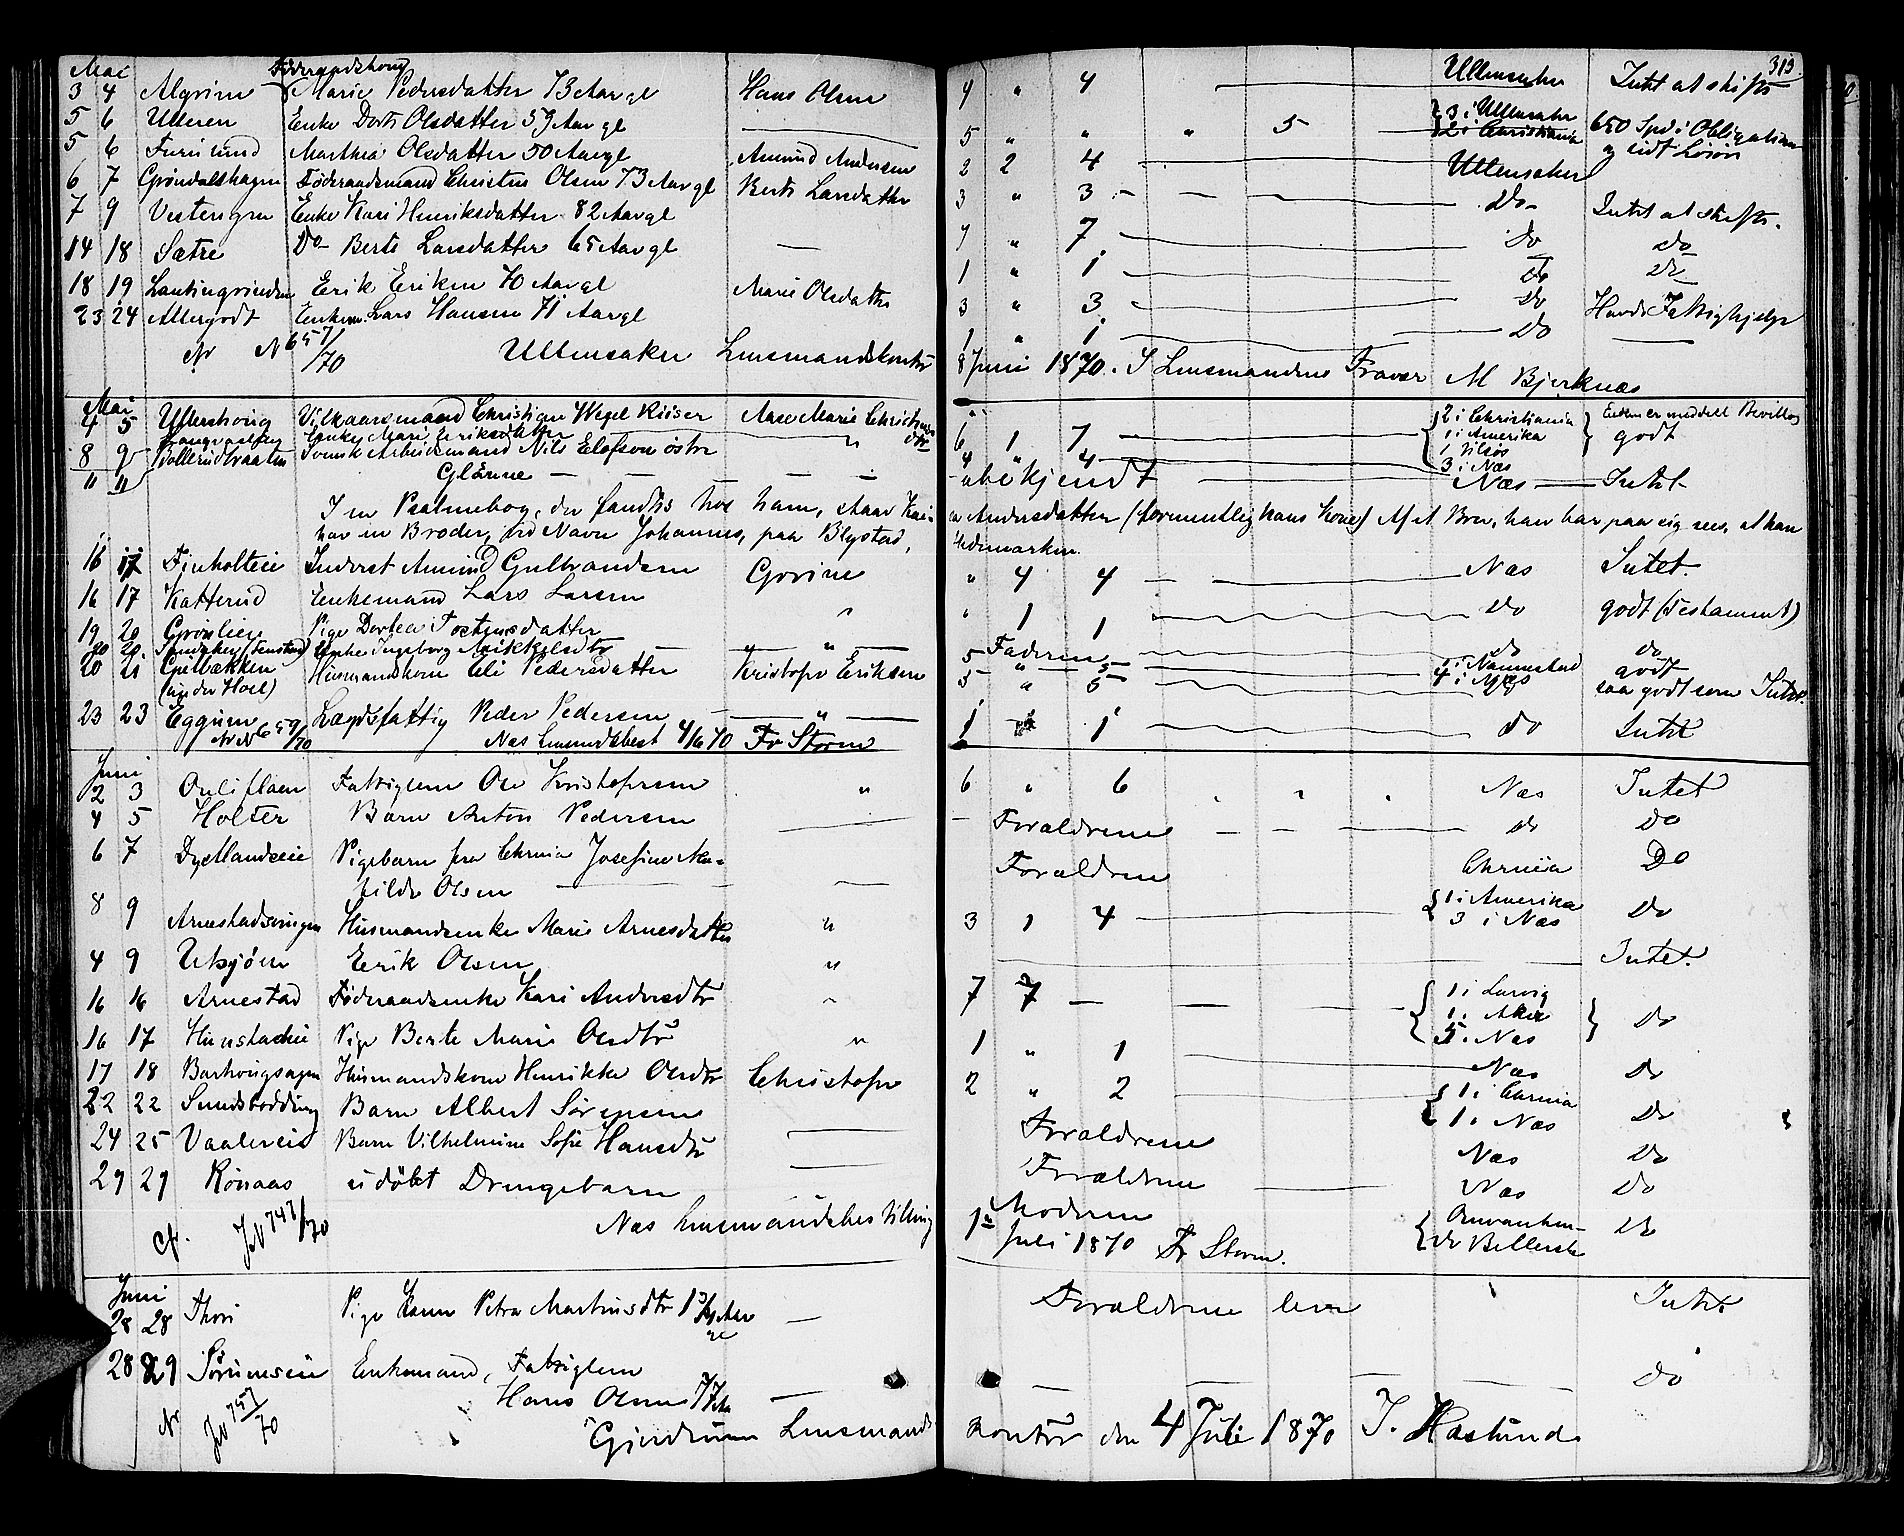 Mai Føderaadskone 313
3 4 Algrim Marie Pedersdatter 73 Aar gl Hans Olsen 4 " 4 Ullensaker Intet at skifte
5 6 Ulleren Enke Dorte Olsdatter 59 Aar gl 5 " " " 5 3 i Ullensaker 2 i Christiania 650 Spd i Obligationer og lidt Løsøre
5 6 Furulund Marthea Olsdatter 50 Aar gl Amund Andersen 2 2 4 Ullensaker
6 7 Grøndalshagen Føderaadsmand Christen Olsen 73 Aar gl Berte Larsdatter 3 " 3 Do Intet at skifte.
7 9 Vestengen Enke Kari Henriksdatter 82 Aar gl 7 " 7 Do do
14 18 Sætre Do Berte Larsdatter 65 Aar gl 1 " 1 Do Do
18 19 Erik Eriksen 70 Aar gl Marie Olsdatter 3 " 3 Do Havde Fattighjelp
23 24 Allergodt Enkem. Lars Hansen 71 Aar gl 1 " 1 Do
N 657/70 Ullensaker Lensmandskontor 8 Juni 1870. I Lensmandens Fravær M Bjerknæs
Mai
4 5 Ullershoug Vilkaarsmand Christian Wegel Kiiser Aase Marie Christens dtr 6 1 7 2 i Christiania 1 i Amerika Enken er meddelt Bevilling
Enke Marie Eriksdatter " 4 " 4 3 i Næs godt
8 9 Bollerudbraaten Svensk Arbeidsmand Nils Elofson østre
" " Glänne ubekjendt Næs Intet
I en Psalmebog, der fandtes hos ham, staar Kari Andersdatter (formentlig hans Kone) Af A. Bro, han har paa sig sees, at han
har en Broder, ved Navn Johannes, paa Blystad, Hedemarken.
16 17 Finholteie Inderst Amund Gulbrandsen Gorine " 4 4 Næs Intet.
16 17 Katterud Enkemand Lars Larsen " 1 1 Do godt (Testament)
19 20 Grønlien Pige Dorthea Tostensdatter " Faderen do do
20 20 Enke Ingeborg Mikkelsdtr " 5 " 5 1 i Nannestad 4 i Næs godt
20 21 Gulbækken (under Hoel) Husmandskone Eli Pedersdatter Kristofer Eriksen 5 " 5 saa godt som Intet.
23 23 Eggum Lægdsfattig Peder Pedersen " 1 " 1 do Intet
N 659/70 Næs Lensmdsbest 4/6 70 Fr Storm
Juni
2 3 Fattiglem Ole Kristofersen " 6 " 6 Næs Intet
4 5 Holter Barn Anton Pedersen Forældrene do Do
6 7 Dystlandseie Pigebarn fra Chrnia Josefine Ma=
thilde Olsen Forældrene Chrnia Do
8 9 Arnestadsvingen Husmandsenke Marie Arnesdatter " 3 1 4 1 i Amerika 3 i Næs Do
4 9 Utsjøen Eerik Olsen " Intet.
16 16 Arnestad Føderaadsenke Kari Andersdtr " 7 7 1 i Larvig 1 i Aker 5 i Næs Do
16 17 Pige Berte Marie Olsdtr " 1 " 1 Næs Do
17 18 Husmandskone Henrikke Olsdtr Christofer 2 " 2 1 i Chrnia 1 i Næs Do
22 22 Barn Albert Sørensen Forældrene Næs Do
24 25 Vaalereie Barn Vilhelmine Sofie Hansdtr Forældrene Næs Do
29 29 Rønaas udøbt Drengebarn Moderen Do
N 747/70 Næs Lensmandsbestilling 1ste Juli 1870 Fr Storm.
Juni
28 28 Thori Pige Karen Petra Martinsdtr 1 3/4 Aar gl Forældrene lever Intet
28 29 Sørumseie Enkemand, Fattiglem
Hans Olsen 77 Aar do
N 757/70 Gjerdrum Lensmands kontor den 4 Juli 1870 J. Haslund